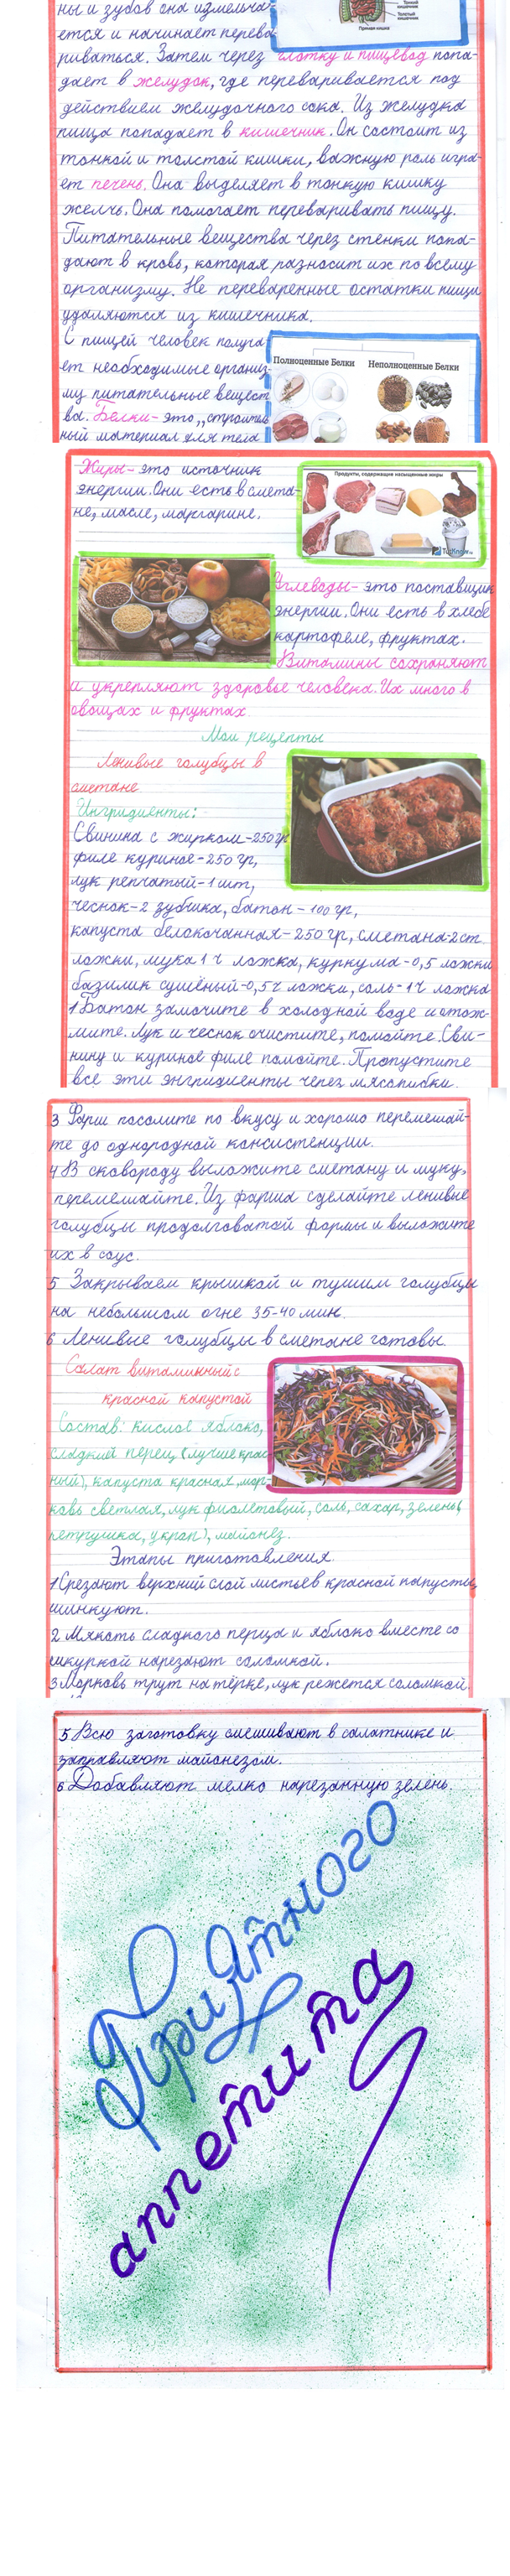 ны и зубов она измельча-
ется и начинает перева
риваться. Затем через глотку и пищевод попа-
дает в желудок, где переваривается под
действием желудочного сока. Из желудка
пища попадает в кишечник. Он состоит из
тонкой и толстой кишки, важную роль игра-
ет печень. Она выделяет в тонкую кишку
желчь. Она помогает переваривать пищу.
Питательные вещества через стенки попа-
дают в кровь, которая разносит их по всему
организму. Не переваренные остатки пищи
удаляются из кишечника.
Тонкий кишечник
Толстый кишечник
Прямая кишка
С пищей человек получа
ет необходимые организ-
му питательные вещест
ва. Белки - это „строитель
ный материал для тела
Полноценные Белки
Неполноценные Белки
Жиры - это источник
энергии. Они есть в смета-
не, масле, маргарине.
Продукты, содержащие насыщенные жиры
Углеводы - это поставщик
энергии. Они есть в хлебе
картофеле, фруктах.
Витамины сохраняют
и укрепляют здоровье человека. Их много в
овощах и фруктах
Мои рецепты
Ленивые голубцы в
сметане
Ингридиенты:
Свинина с жирком - 250 гр
филе куриное - 250 гр,
лук репчатый - 1 шт,
чеснок - 2 зубчика, батон - 100 гр,
капуста белокочанная - 250 гр, сметана - 2 ст
ложки, мука 1 ч ложка, куркума - 0,5 ложки
базилик сушёный - 0,5 ч ложки, соль - 1 ч ложка
1 Батон замочите в холодной воде и отож-
мите. Лук и чеснок очистите, помойте. Сви-
нину и куриное филе помойте. Пропустите
все эти энгридиенты через мясорубки.
3 Фарш посолите по вкусу и хорошо перемешай-
те до однородной консистенции.
4 В сковороду выложите сметану и муку,
перемешайте. Из фарша сделайте ленивые
голубцы продолговатой формы и выложите
их в соус.
5 Закрываем крышкой и тушим голубцы
на небольшом огне 35-40 мин.
6 Ленивые голубцы в сметане готовы.
Салат витаминный с
красной капустой
Состав: кислое яблоко,
сладкий перец (лучше крас
ный), капуста красная, мор-
ковь светлая, лук фиолетовый, соль, сахар, зелень(
петрушка, укроп), майонез.
Этапы приготовления
1 Срезают верхний слой листьев красной капусты,
шинкуют.
2 Мякоть сладкого перца и яблоко вместе со
шкуркой нарезают соломкой.
3 Морковь трут на тёрке, лук режется соломкой.
5 Всю заготовку смешивают в салатнике и
заправляют майонезом.
6 Добавляют мелко нарезанную зелень.
Приятного
аппетита